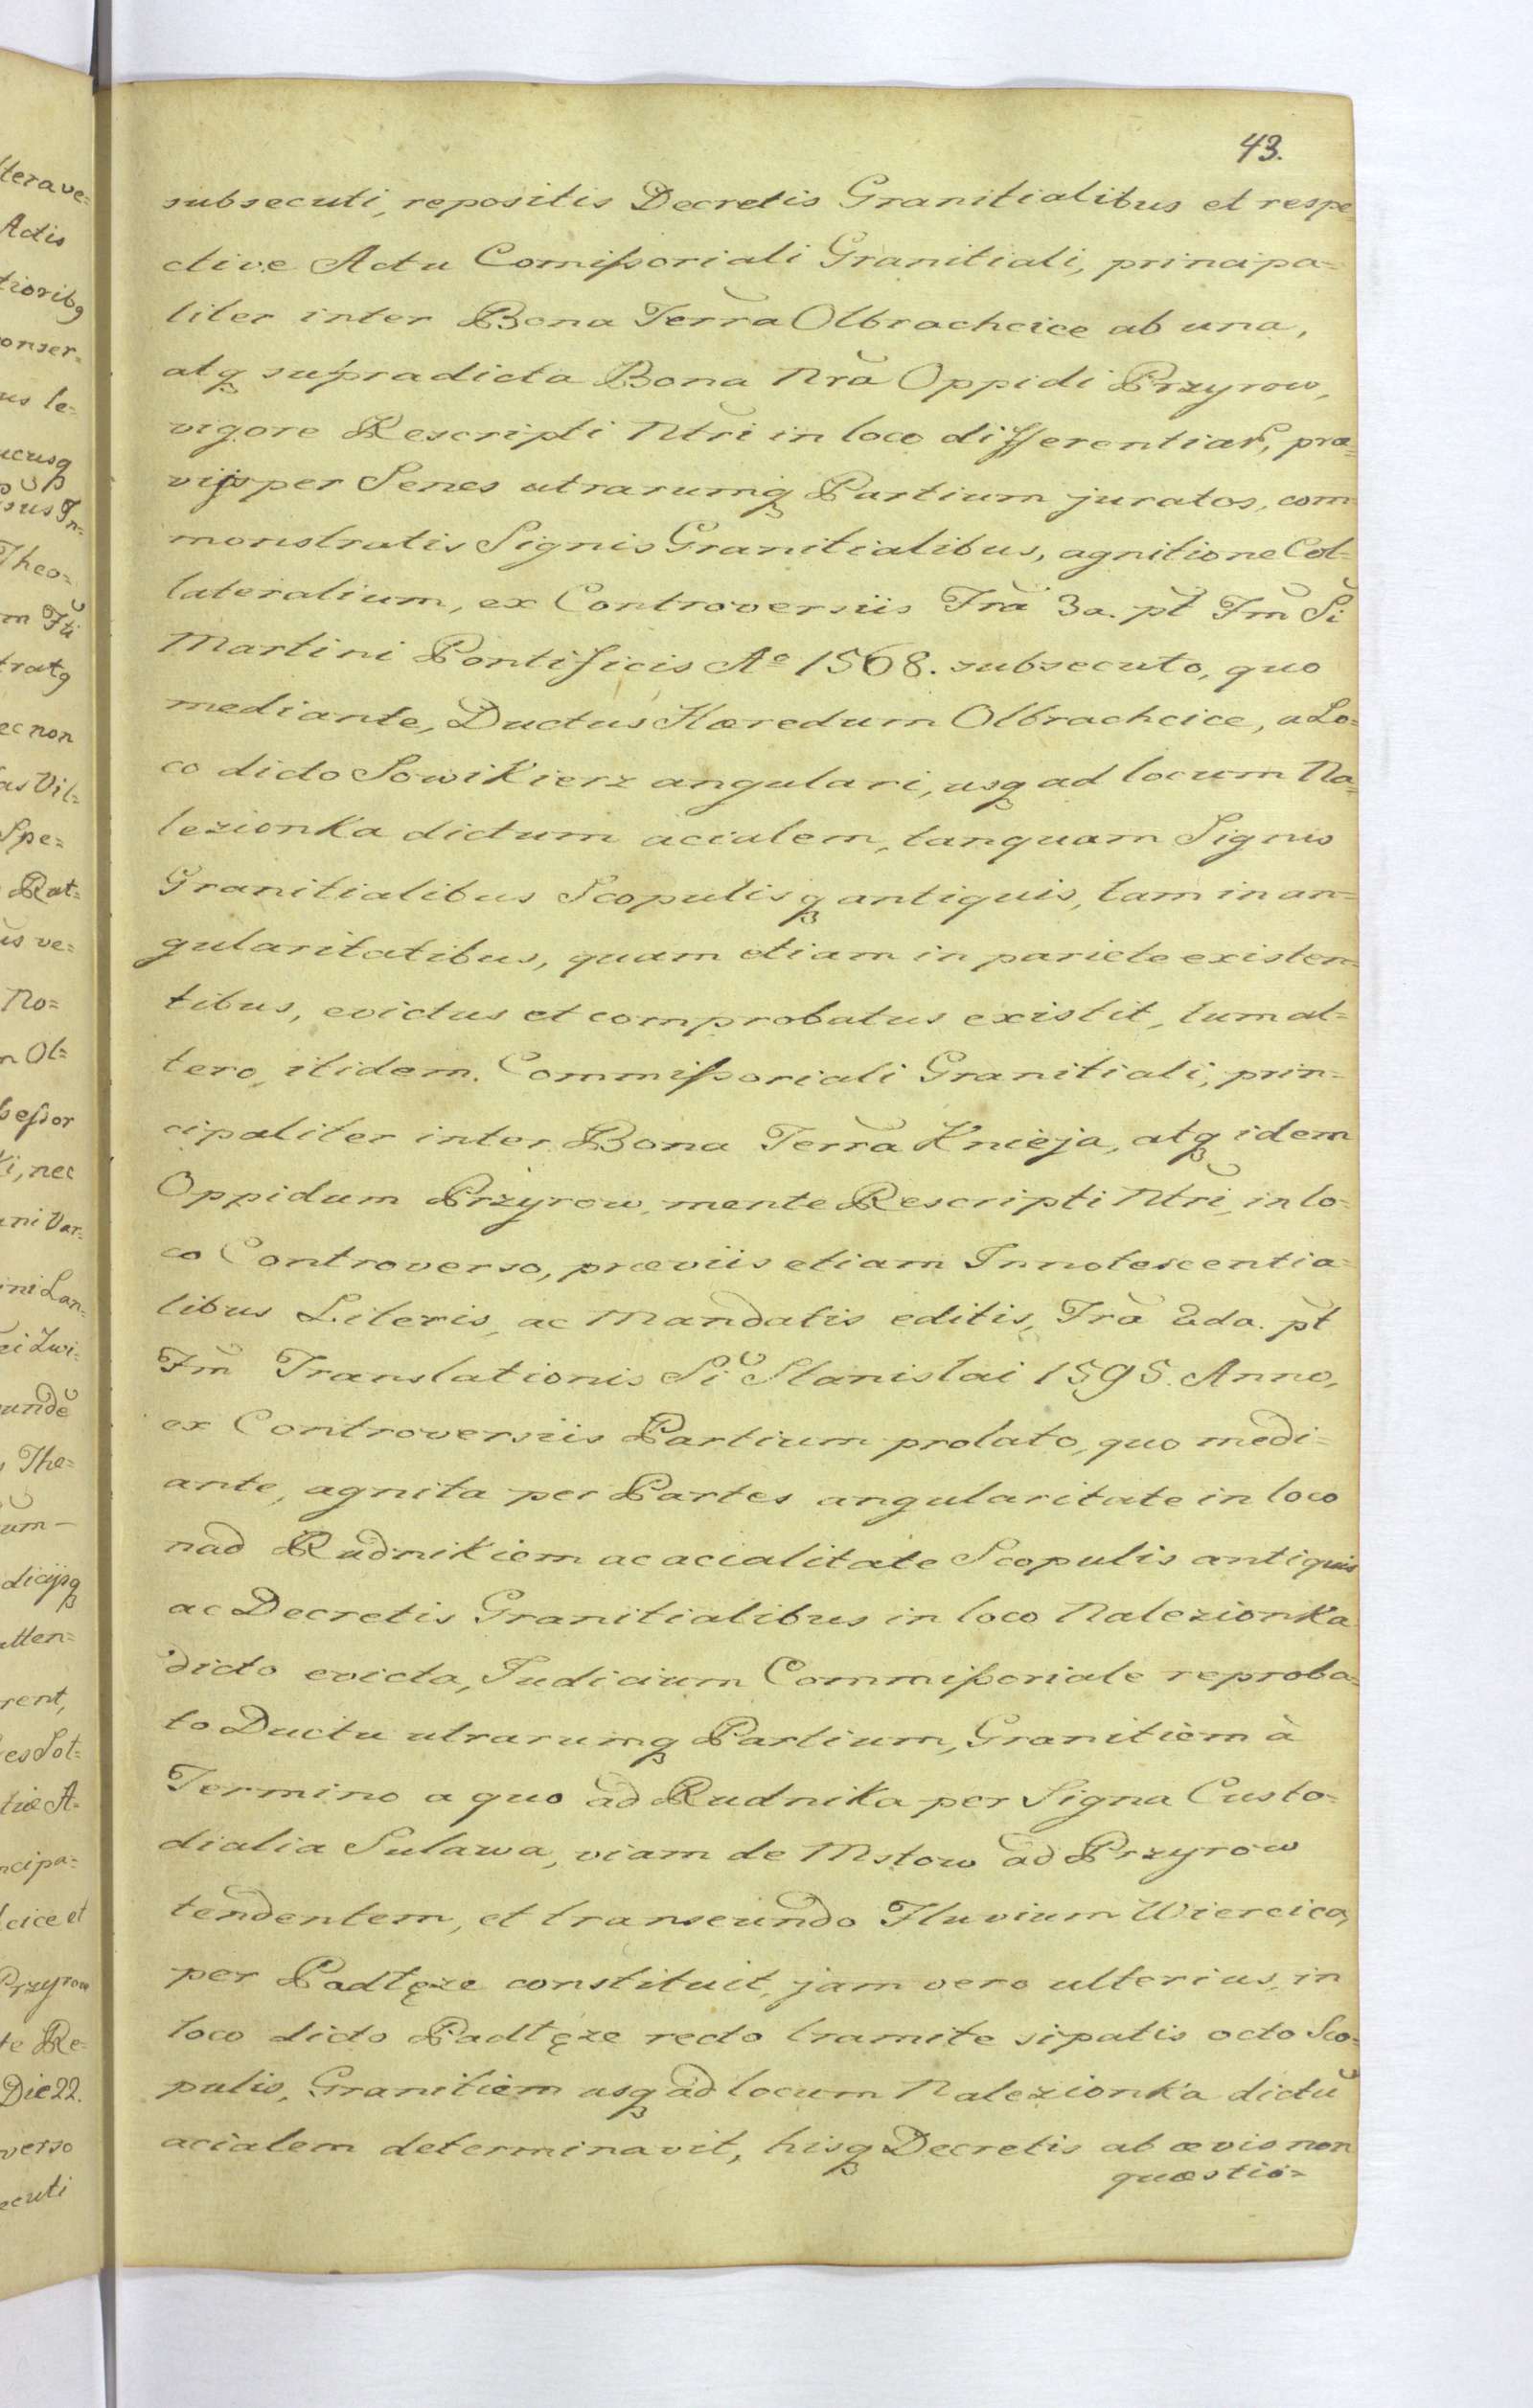 43.
subsecuti, repositis Decretis Granitialibus et respe=
ctive Actu Comißoriali Granitiali, principa=
liter inter Bona Terrã Olbrachcice ab una,
atq supradicta Bona Nrã Oppidi Przyrow,
vigore Rescripti Ntri in loco differentiar, præ=
vijs per Senes utrarumq Partium juratos, com=
monstratis Signis Granitialibus, agnitione Col=
lateralium, ex Controversiis Frã 3a. pt Fm Si
Martini Pontificis Aº 1568. subsecuto, quo
mediante, Ductus Hæredum Olbrachcice, a Lo=
co dicto Sowi Kierz angulari, usq ad locum Na=
lezionka dictum acialem, tanquam Signis
Granitialibus Scopulisq antiquis, tam in an=
gularitatibus, quam etiam in pariete existen=
tibus, evictus et comprobatus existit, tum al=
tero, itidem. Commißoriali Granitiali, prin=
cipaliter inter Bona Terrã Knieja, atq idem
Oppidum Przyrow, mente Rescripti Ntri, in lo=
co Controverso, præviis etiam Innotescentia=
libus Literis, ac Mandatis editis, Frã 2da. pt
Fm Translationis Si Stanislai 1595. Anno,
ex Controversiis Partium prolato, quo medi=
ante, agnita per Partes angularitate in loco
nad Rudnikiem ac acialitate Scopulis antiquis
ac Decretis Granitialibus in loco Nalezionka
dicto evicta, Judicium Commißoriale reproba=
to Ductu utrarumq Partium, Granitiem à
Termino a quo ad Rudnika per Signa Custo=
dialia Sulawa, viam de Mstow ad Przyrow
tendentem, et transeundo Fluvium Wiercica,
per Padtęże constituit, jam vero ulterius, in
loco dicto Padtęże recto tramite sipatis octo Sco=
pulis, Granitiem usq ad locum Nalezionka dictũ
acialem determinavit, hisq Decretis ab ævis non
quæstio=